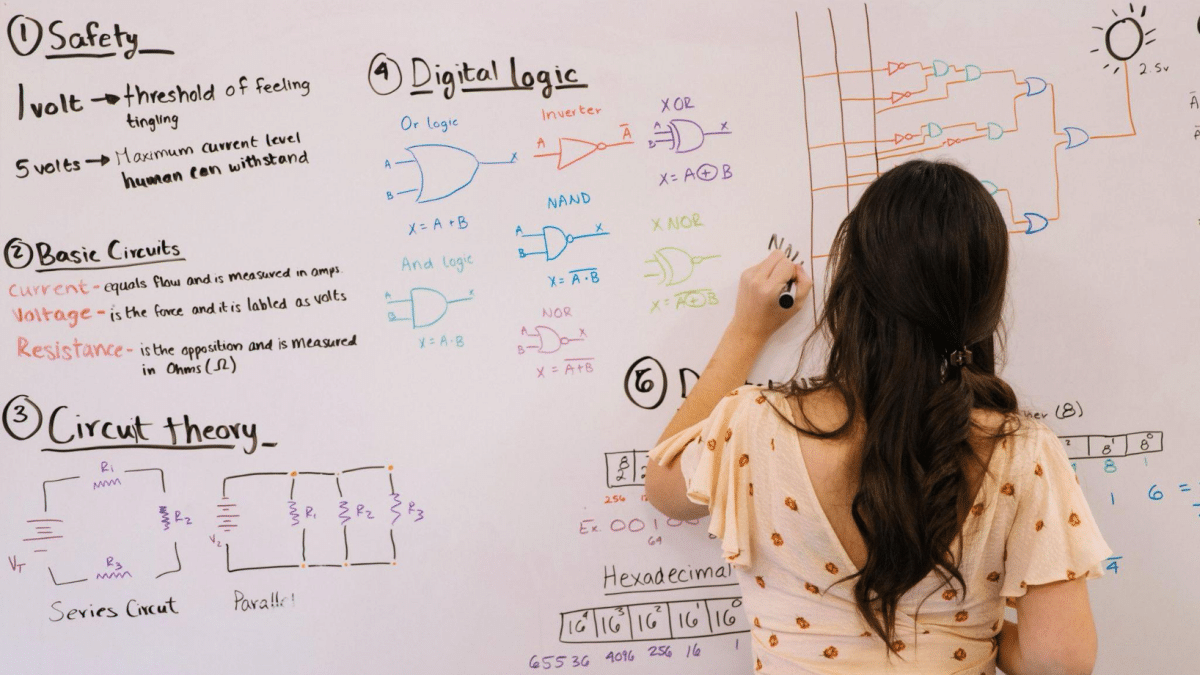 ① Safety
1 volt → threshold of feeling
tingling
5 volts → Maximum current level
human can withstand
② Basic Circuits
Current - equals flow and is measured in amps.
Voltage - is the force and it is labled as volts
Resistance - is the opposition and is measured
in Ohms (Ω)
③ Circuit theory
R₁
R₂
R₃
VT
Series Circut
V₂
R₁
R₂
R₃
Parallel
④ Digital logic
Or logic
A
B
X
X = A + B
And logic
A
B
X
X = A·B
Inverter
A
A̅
NAND
A
B
X
X = A̅·̅B̅
NOR
A
B
X
X = A̅+̅B̅
XOR
A
B
X
X = A⊕B
XNOR
X = A̅⊕̅B̅
2.5v
⑥ D
256
Ex. 0010
64
(8)
8¹ 8⁰
8 1
1 6 =
4
Hexadecimal
16⁴ 16³ 16² 16¹ 16⁰
65536 4096 256 16 1